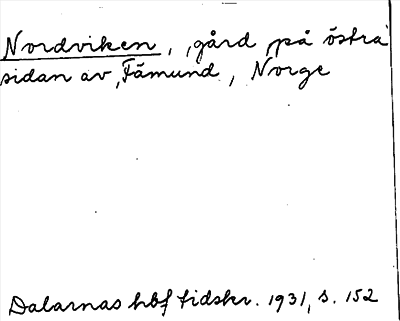 Nordviken, gård på östra
sidan av Fämund, Norge
Dalarnas hbf tidskr. 1931, s. 152